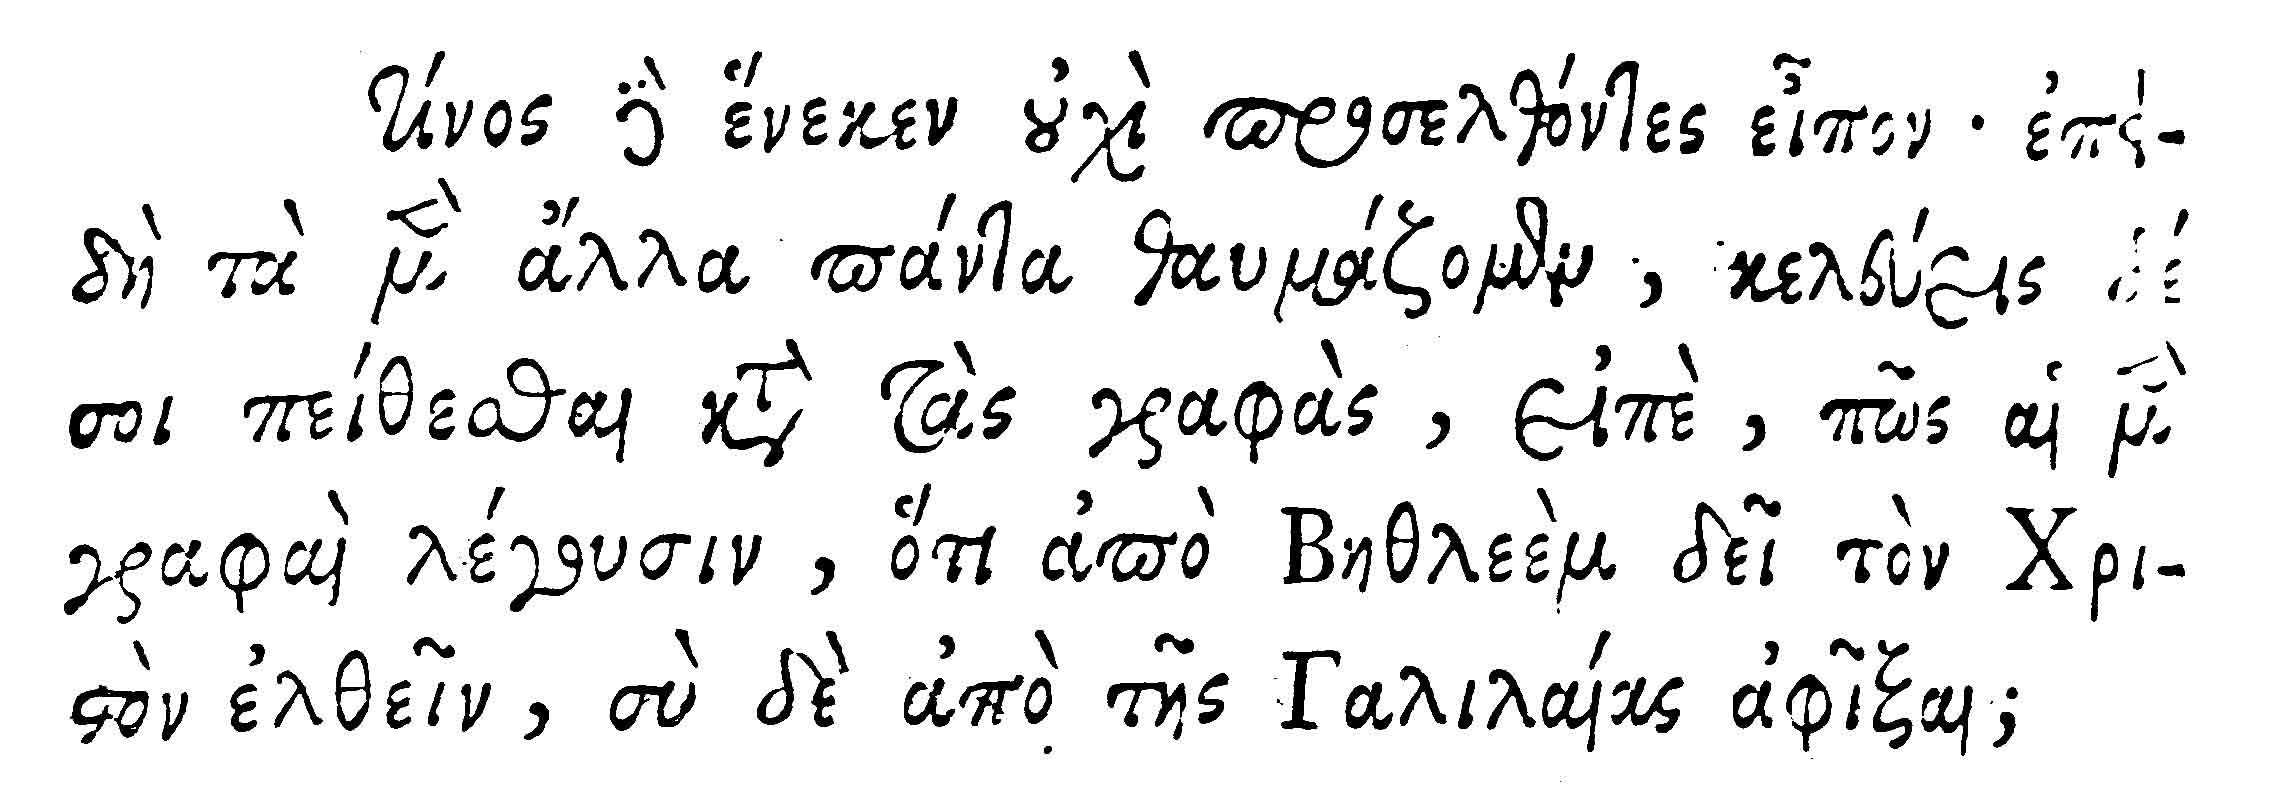 τίνος δὲ ἕνεκεν οὐχὶ προσελθόντες εἶπον· ἐπει-
δὴ τὰ μὲν ἄλλα πάντα θαυμάζομεν, κελεύεις δέ
σοι πείθεσθαι κατὰ τὰς γραφὰς, εἰπὲ, πῶς αἱ μὲν
γραφαὶ λέγουσιν, ὅτι ἀπὸ Βηθλεὲμ δεῖ τὸν Χρι-
στὸν ἐλθεῖν, σὺ δὲ ἀπὸ τῆς Γαλιλαίας ἀφῖξαι;